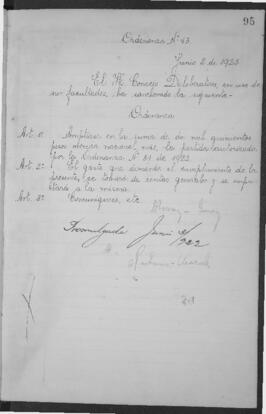 95
Ordenanza Nº 43
Junio 2 de 1923
El H. Concejo Deliberativo, en uso de
sus facultades, ha sancionado la siguiente
Ordenanza
Art. 1º Amplíase en la suma de dos mil quinientos
pesos moneda nacional, más, la partida autorizada
por la Ordenanza Nº 31 de 1922.
Art. 2º El gasto que demande el cumplimiento de la
presente, se tomará de rentas generales y se impu-
tará a la misma.
Art. 3º Comuníquese, etc.
Promulgada Junio